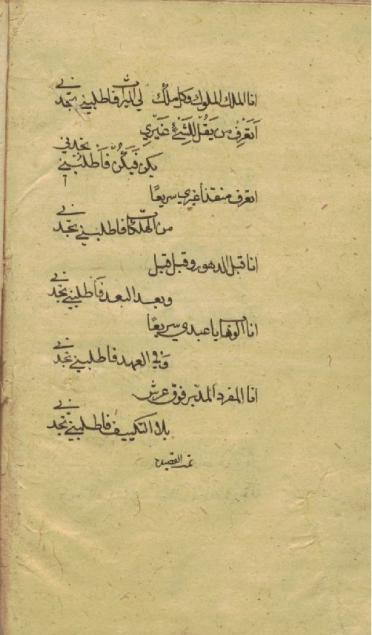 انا الملك الملوك وكل ملك لي الميراث فاطلبني تجدني
اتعرف من يقل للشئ غيري
يكن فيكن فاطلبني تجدني
اتعرف منقذا غيري سريعا
من الهلكات فاطلبني تجدني
انا قبل الدهور وقبل قبل
وبعد البعد فاطلبني تجدني
انا الوهاب يا عبدي سريعا
وفي العهد فاطلبني تجدني
انا المفرد المدبر فوق عرش
بلا التكييف فاطلبني تجدني
تمت القصيدة